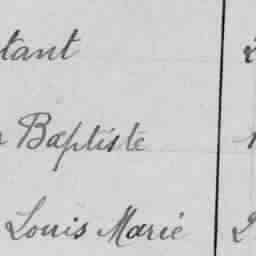 tant
Baptiste
Louis Marie